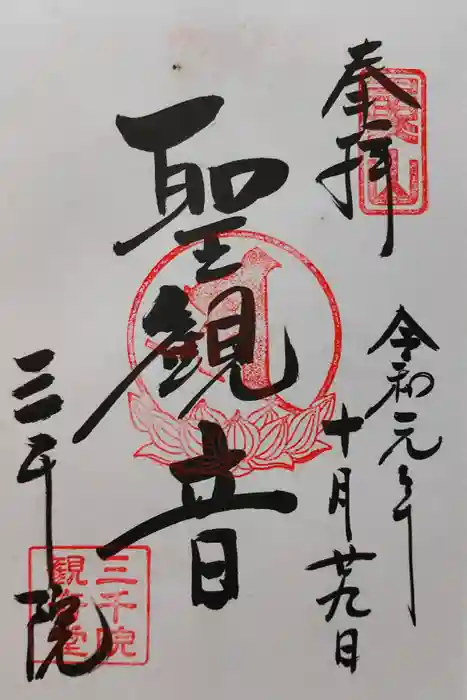 奉拝
令和元年
十月廿九日
聖観音
三千院
三千院
観音堂